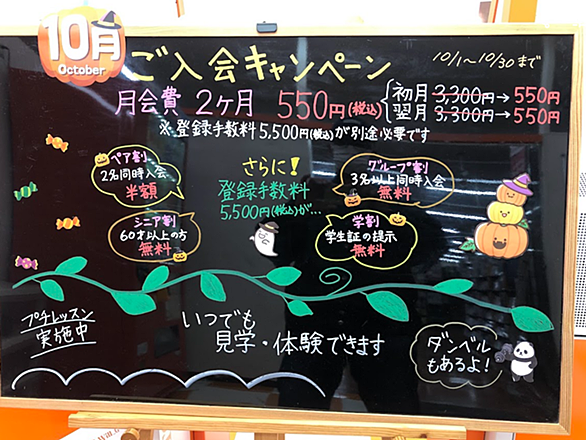 10月
October
ご入会キャンペーン
10/1〜10/30まで
月会費 2ヶ月 550円(税込)
初月 3,300円→550円
翌月 3,300円→550円
※登録手数料5,500円(税込)が別途必要です
ペア割
2名同時入会
半額
さらに!
登録手数料
5,500円(税込)が…
グループ割
3名以上同時入会
無料
シニア割
60才以上の方
無料
学割
学生証の提示
無料
プチレッスン
実施中
いつでも
見学・体験できます
ダンベル
もあるよ!